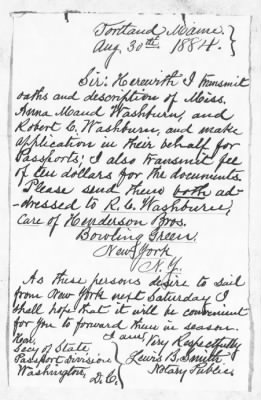 Portland Maine.
Aug. 30th 1884.
Sir: Herewith I transmit
oaths and description of Miss.
Anna Maud Washburn, and
Robert C. Washburn, and make
application in their behalf for
Passports; I also transmit fee
of ten dollars for the documents.
Please send them both ad-
dressed to R. C. Washburn,
Care of Henderson Bros.
Bowling Green
New York
N.Y.
As these persons desire to sail
from New York next Saturday I
shall hope that it will be convenient
for you to forward them in season.
I am Very Respectfully
Hon.
Secy of State,
Lewis B. Smith
Passport Division
Notary Public
Washington,
D.C.